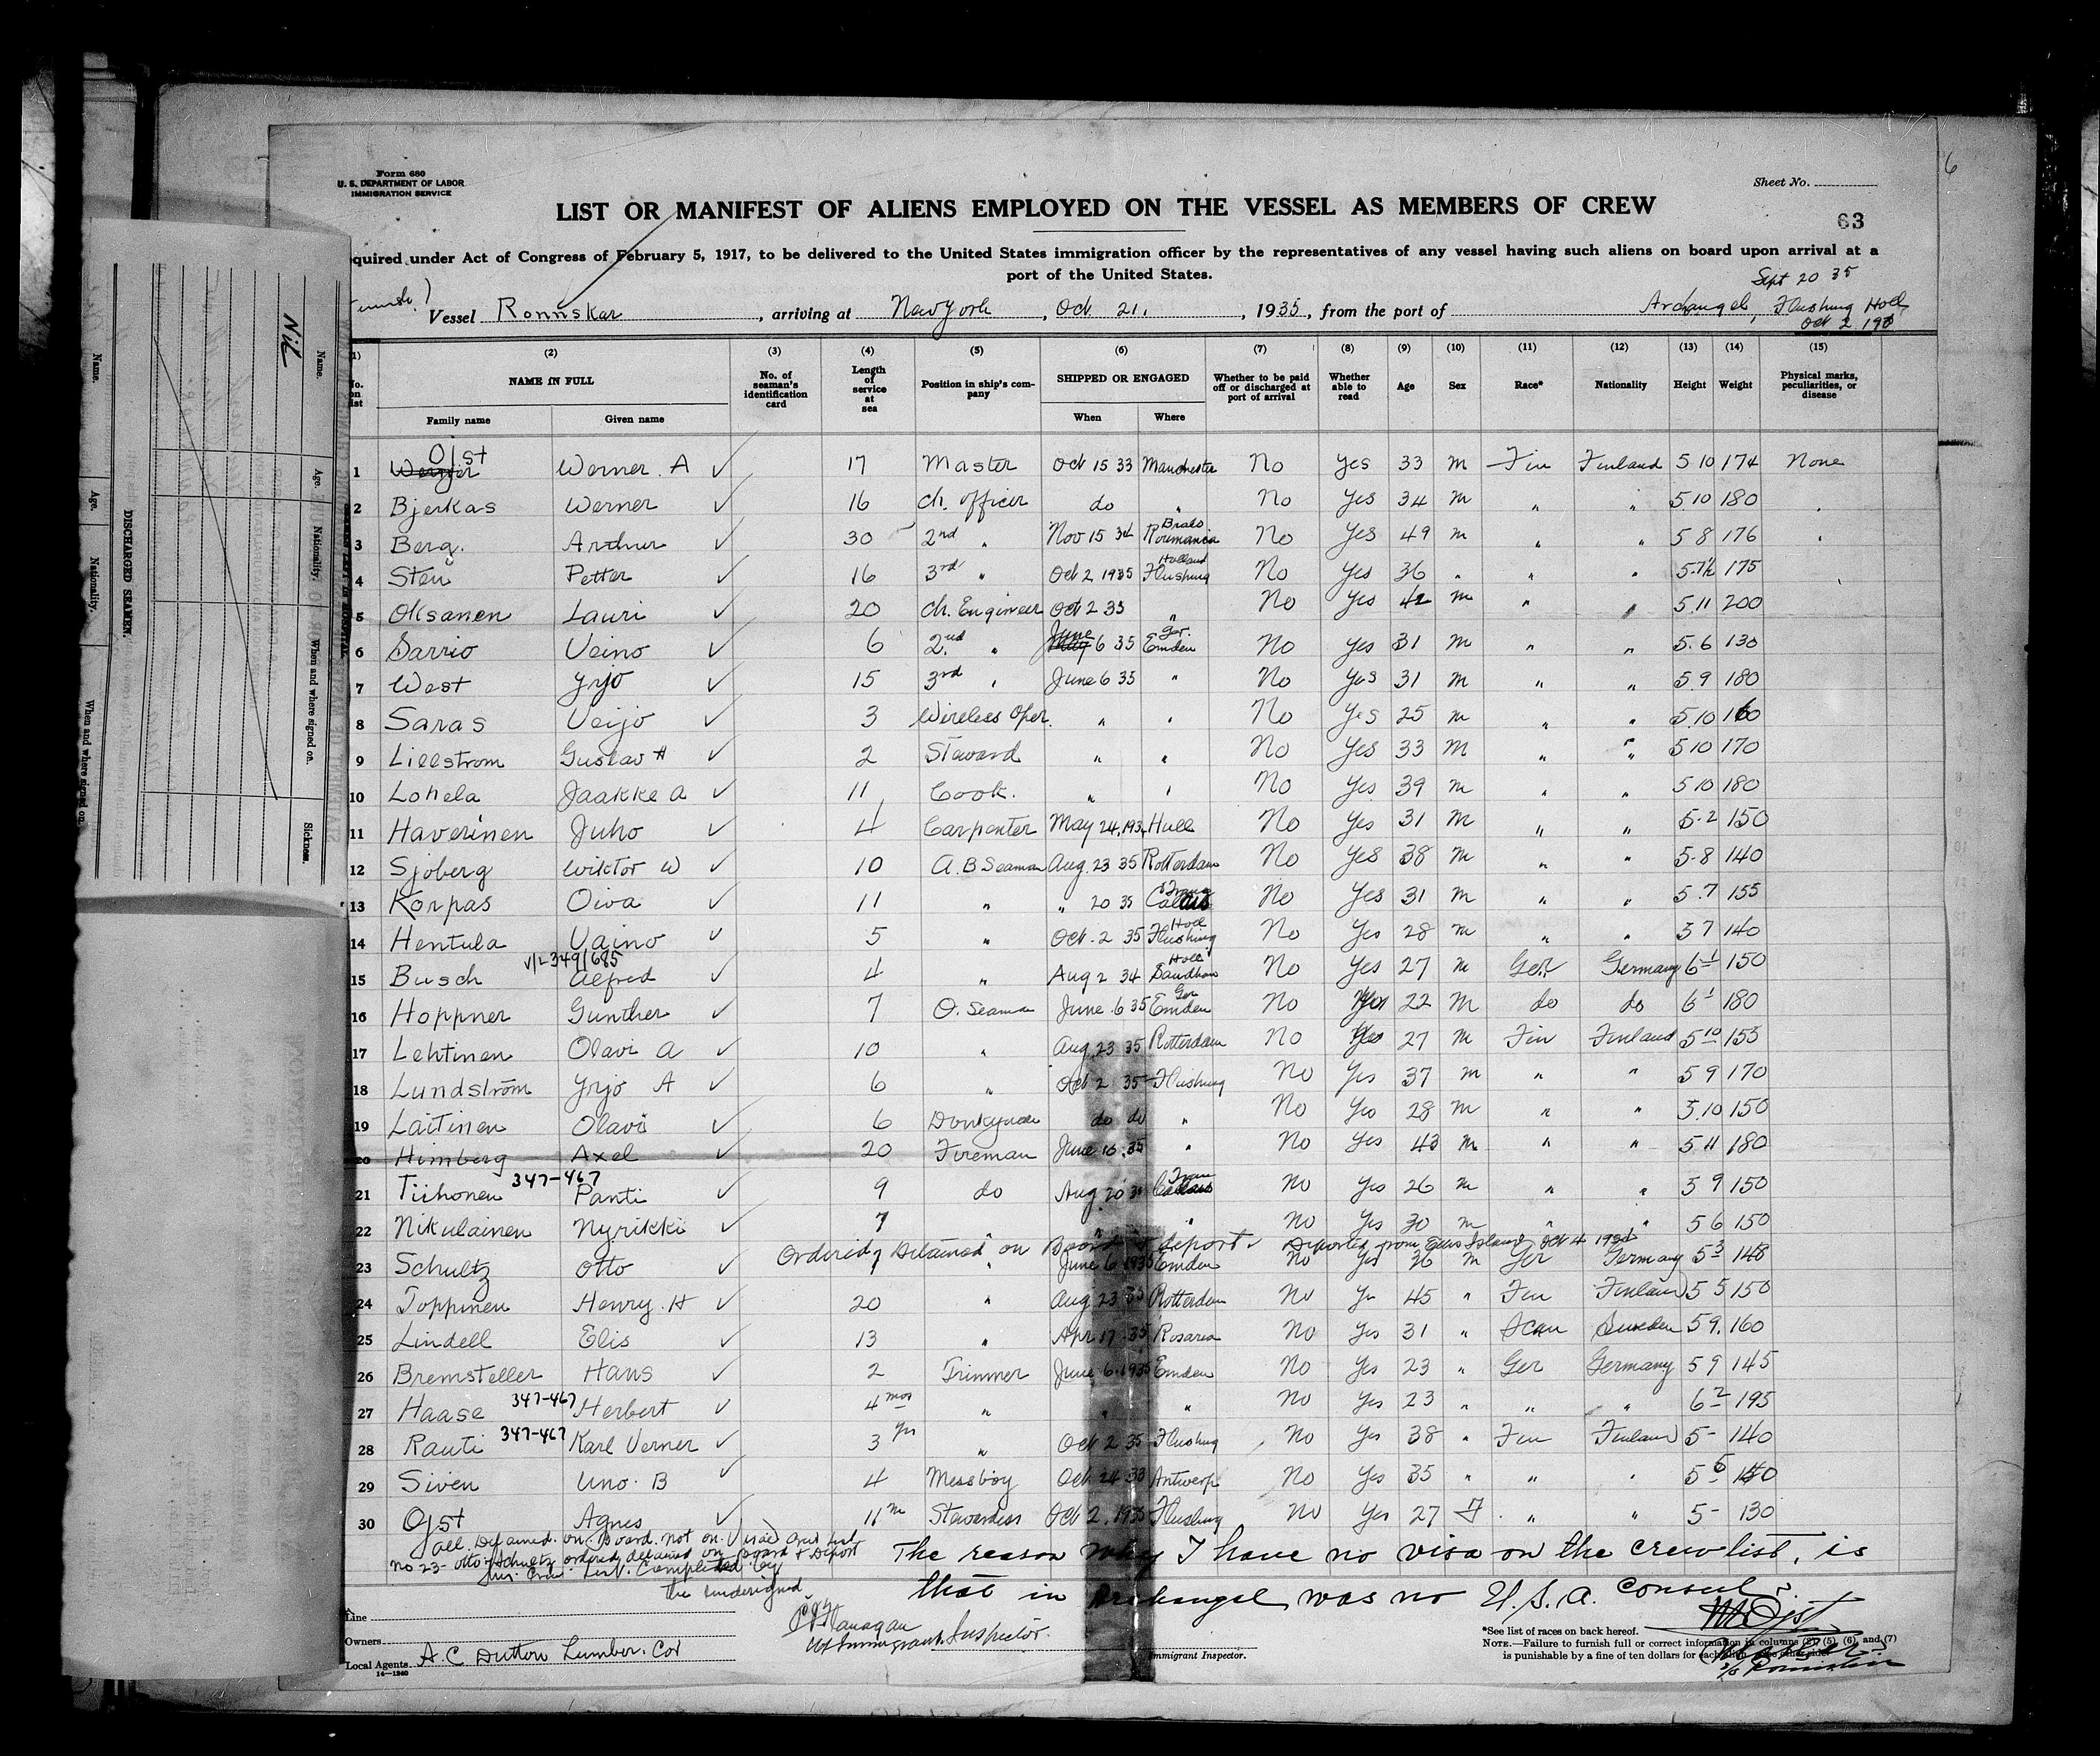 Form 680
U. S. DEPARTMENT OF LABOR
IMMIGRATION SERVICE
Sheet No.
LIST OR MANIFEST OF ALIENS EMPLOYED ON THE VESSEL AS MEMBERS OF CREW
63
6
quired under Act of Congress of February 5, 1917, to be delivered to the United States immigration officer by the representatives of any vessel having such aliens on board upon arrival at a
port of the United States.
Sept 20 35
Vessel Ronnskar, arriving at New York, Oct 21, 1935, from the port of Archangel, Flushing Holl
Oct 2 19
(1) (2) (3) (4) (5) (6) (7) (8) (9) (10) (11) (12) (13) (14) (15)
No. on list NAME IN FULL Family name Given name No. of seaman's identification card Length of service at sea Position in ship's company SHIPPED OR ENGAGED When Where Whether to be paid off or discharged at port of arrival Whether able to read Age Sex Race* Nationality Height Weight Physical marks, peculiarities, or disease
1 Ojst Werner A ✓ 17 Master Oct 15 33 Manchester No Yes 33 m Fin Finland 5 10 174 None
2 Bjerkas Werner ✓ 16 Ch. Officer do " No Yes 34 m " " 5 10 180
3 Berg. Arthur ✓ 30 2nd " Nov 15 34 Roumania No Yes 49 m " " 5 8 176
4 Sten Petter ✓ 16 3rd " Oct 2 1935 Holland Flushing No Yes 36 " " " 5.7½ 175
5 Oksanen Lauri ✓ 20 Ch. Engineer Oct 2 35 " No Yes 42 m " " 5.11 200
6 Sarrio Veino ✓ 6 2nd " June 6 35 Ger. Emden No Yes 31 m " " 5.6 130
7 West Yrjo ✓ 15 3rd " June 6 35 " No Yes 31 m " " 5 9 180
8 Saras Veijo ✓ 3 Wireless Oper. " " No Yes 25 m " " 5.10 160
9 Lillstrom Gustav H ✓ 2 Steward " " No Yes 33 M " " 5 10 170
10 Lohela Jaakke A ✓ 11 Cook. " " No Yes 39 m " " 5 10 180
11 Haverinen Juho ✓ 4 Carpenter May 24, 193 Hull No Yes 31 M " " 5.2 150
12 Sjoberg Wiktor W ✓ 10 A. B Seaman Aug. 23 35 Rotterdam No Yes 38 m " " 5-8 140
13 Korpas Oiva ✓ 11 " " 20 35 No Yes 31 m " " 5.7 155
14 Hentula Vaino ✓ 5 " Oct. 2 35 Holl Flushing No Yes 28 m " " 5 7 140
15 Busch Alfred ✓ 4 " Aug 2 34 Holl No Yes 27 m Ger Germany 6 1 150
16 Hoppner Gunther ✓ 7 O. Seaman June 6 35 Ger Emden No Yes 22 M do do 6 1 180
17 Lehtinen Olavi A ✓ 10 " Aug 23 35 Rotterdam No Yes 27 M Fin Finland 5 10 153
18 Lundström Yrjo A ✓ 6 " Oct 2 35 Flushing No Yes 37 m " " 5 9 170
19 Laitinen Olavi ✓ 6 Donkyman do do " No Yes 28 m " " 5.10 150
20 Himberg Axel ✓ 20 Fireman June 16.35 " No Yes 43 m " " 5 11 180
21 Tiihonen 347-467 Panti ✓ 9 do Aug 20 35 No Yes 26 m " " 5 9 150
22 Nikulainen Nyrikki ✓ 7 " " " No Yes 30 m " " 5 6 150
Ordered Detained on Board & deport Deported from Ellis Island Oct 4
23 Schultz Otto ✓ " June 6 1935 Emden No Yes 36 m Ger Germany 5 3 148
24 Toppinen Henry. H ✓ 20 " Aug 23 35 Rotterdam No Yes 45 " Fin Finland 5 5 150
25 Lindell Elis ✓ 13 " Apr 17 35 Rosario No Yes 31 " Scan Sweden 5 9. 160
26 Bremsteller Hans ✓ 2 Trimmer June 6.1935 Emden No Yes 23 " Ger Germany 5 9 145
27 Haase 347-467 Herbert ✓ 4 mos " " " No Yes 23 " " " 6 2 195
28 Rauti 347-467 Karl Verner ✓ 3 yrs " Oct 2 35 Flushing No Yes 38 " Fin Finland 5- 140
29 Siven Uno. B ✓ 4 Messboy Oct 24 33 Antwerp No Yes 35 " " " 5 6
30 Ojst Agnes ✓ 11 m Stewardess Oct 2, 1935 Flushing No Yes 27 F " " 5- 130
all. Detained. on. Board. not on. Visaed Crew List
no 23- Otto Schultz ordered detained on board & Deport
Crew List. Completed by
the undersigned
The reason why I have no visa on the crewlist, is
that in Archangel was no U.S.A. Consul
Flanagan
US Immigrant. Inspector.
Line
Owners
Local Agents A. C Dutton Lumber. Cor
14—1240
Immigrant Inspector.
*See list of races on back hereof.
NOTE.—Failure to furnish full or correct information in columns (2), (5), (6), and (7)
is punishable by a fine of ten dollars for each
Nil
Name. Age. Nationality. When and where signed on. Sickness.
DISCHARGED SEAMEN.
Name. Age. Nationality. When and where signed on.